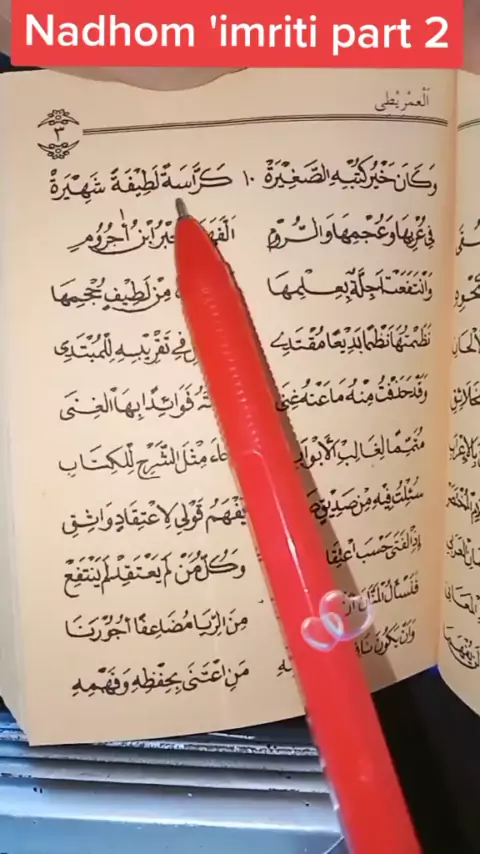 Nadhom 'imriti part 2
اَلْعِمْرِيْطِي
٣
وَكَانَ خَيْرُ كُتْبِهِ الصَّغِيْرَةْ ١٠ كَرَّاسَةٌ لَطِيْفَةٌ شَهِيْرَةْ
فِي عُرْبِهَا وَعُجْمِهَا وَالرُّوْمِ ابْنُ اٰجُرُّوْمِ
وَانْتَفَعَتْ اَجِلَّةٌ بِعِلْمِهَا مِنْ لَطِيْفِ حَجْمِهَا
نَظَمْتُهَا نَظْمًا بَدِيْعًا مُقْتَدِيْ فِيْ تَقْرِيْبِهِ لِلْمُبْتَدِى
وَقَدْ حَذَفْتُ مِنْهُ مَا عَنْهُ غِنَى فَوَائِدًا بِهَا الْغِنَى
مُتَمِّمًا لِغَالِبِ الْاَبْوَابِ مِثْلَ الشَّرْحِ لِلْكِتَابِ
سُئِلْتُ فِيْهِ مِنْ صَدِيْقٍ يَفْهَمُ قَوْلِى لِاعْتِقَادٍ وَاثِقِ
اِذِ الْفَتَى حَسْبَ اعْتِقَا وَكُلُّ مَنْ لَمْ يَعْتَقِدْ لَمْ يَنْتَفِعْ
فَنَسْأَلُ الْمَنَّانَ مِنَ الرِّيَا مُضَاعِفًا اُجُوْرَنَا
وَاَنْ يَكُوْنَ مَنِ اعْتَنَى بِحِفْظِهِ وَفَهْمِهِ